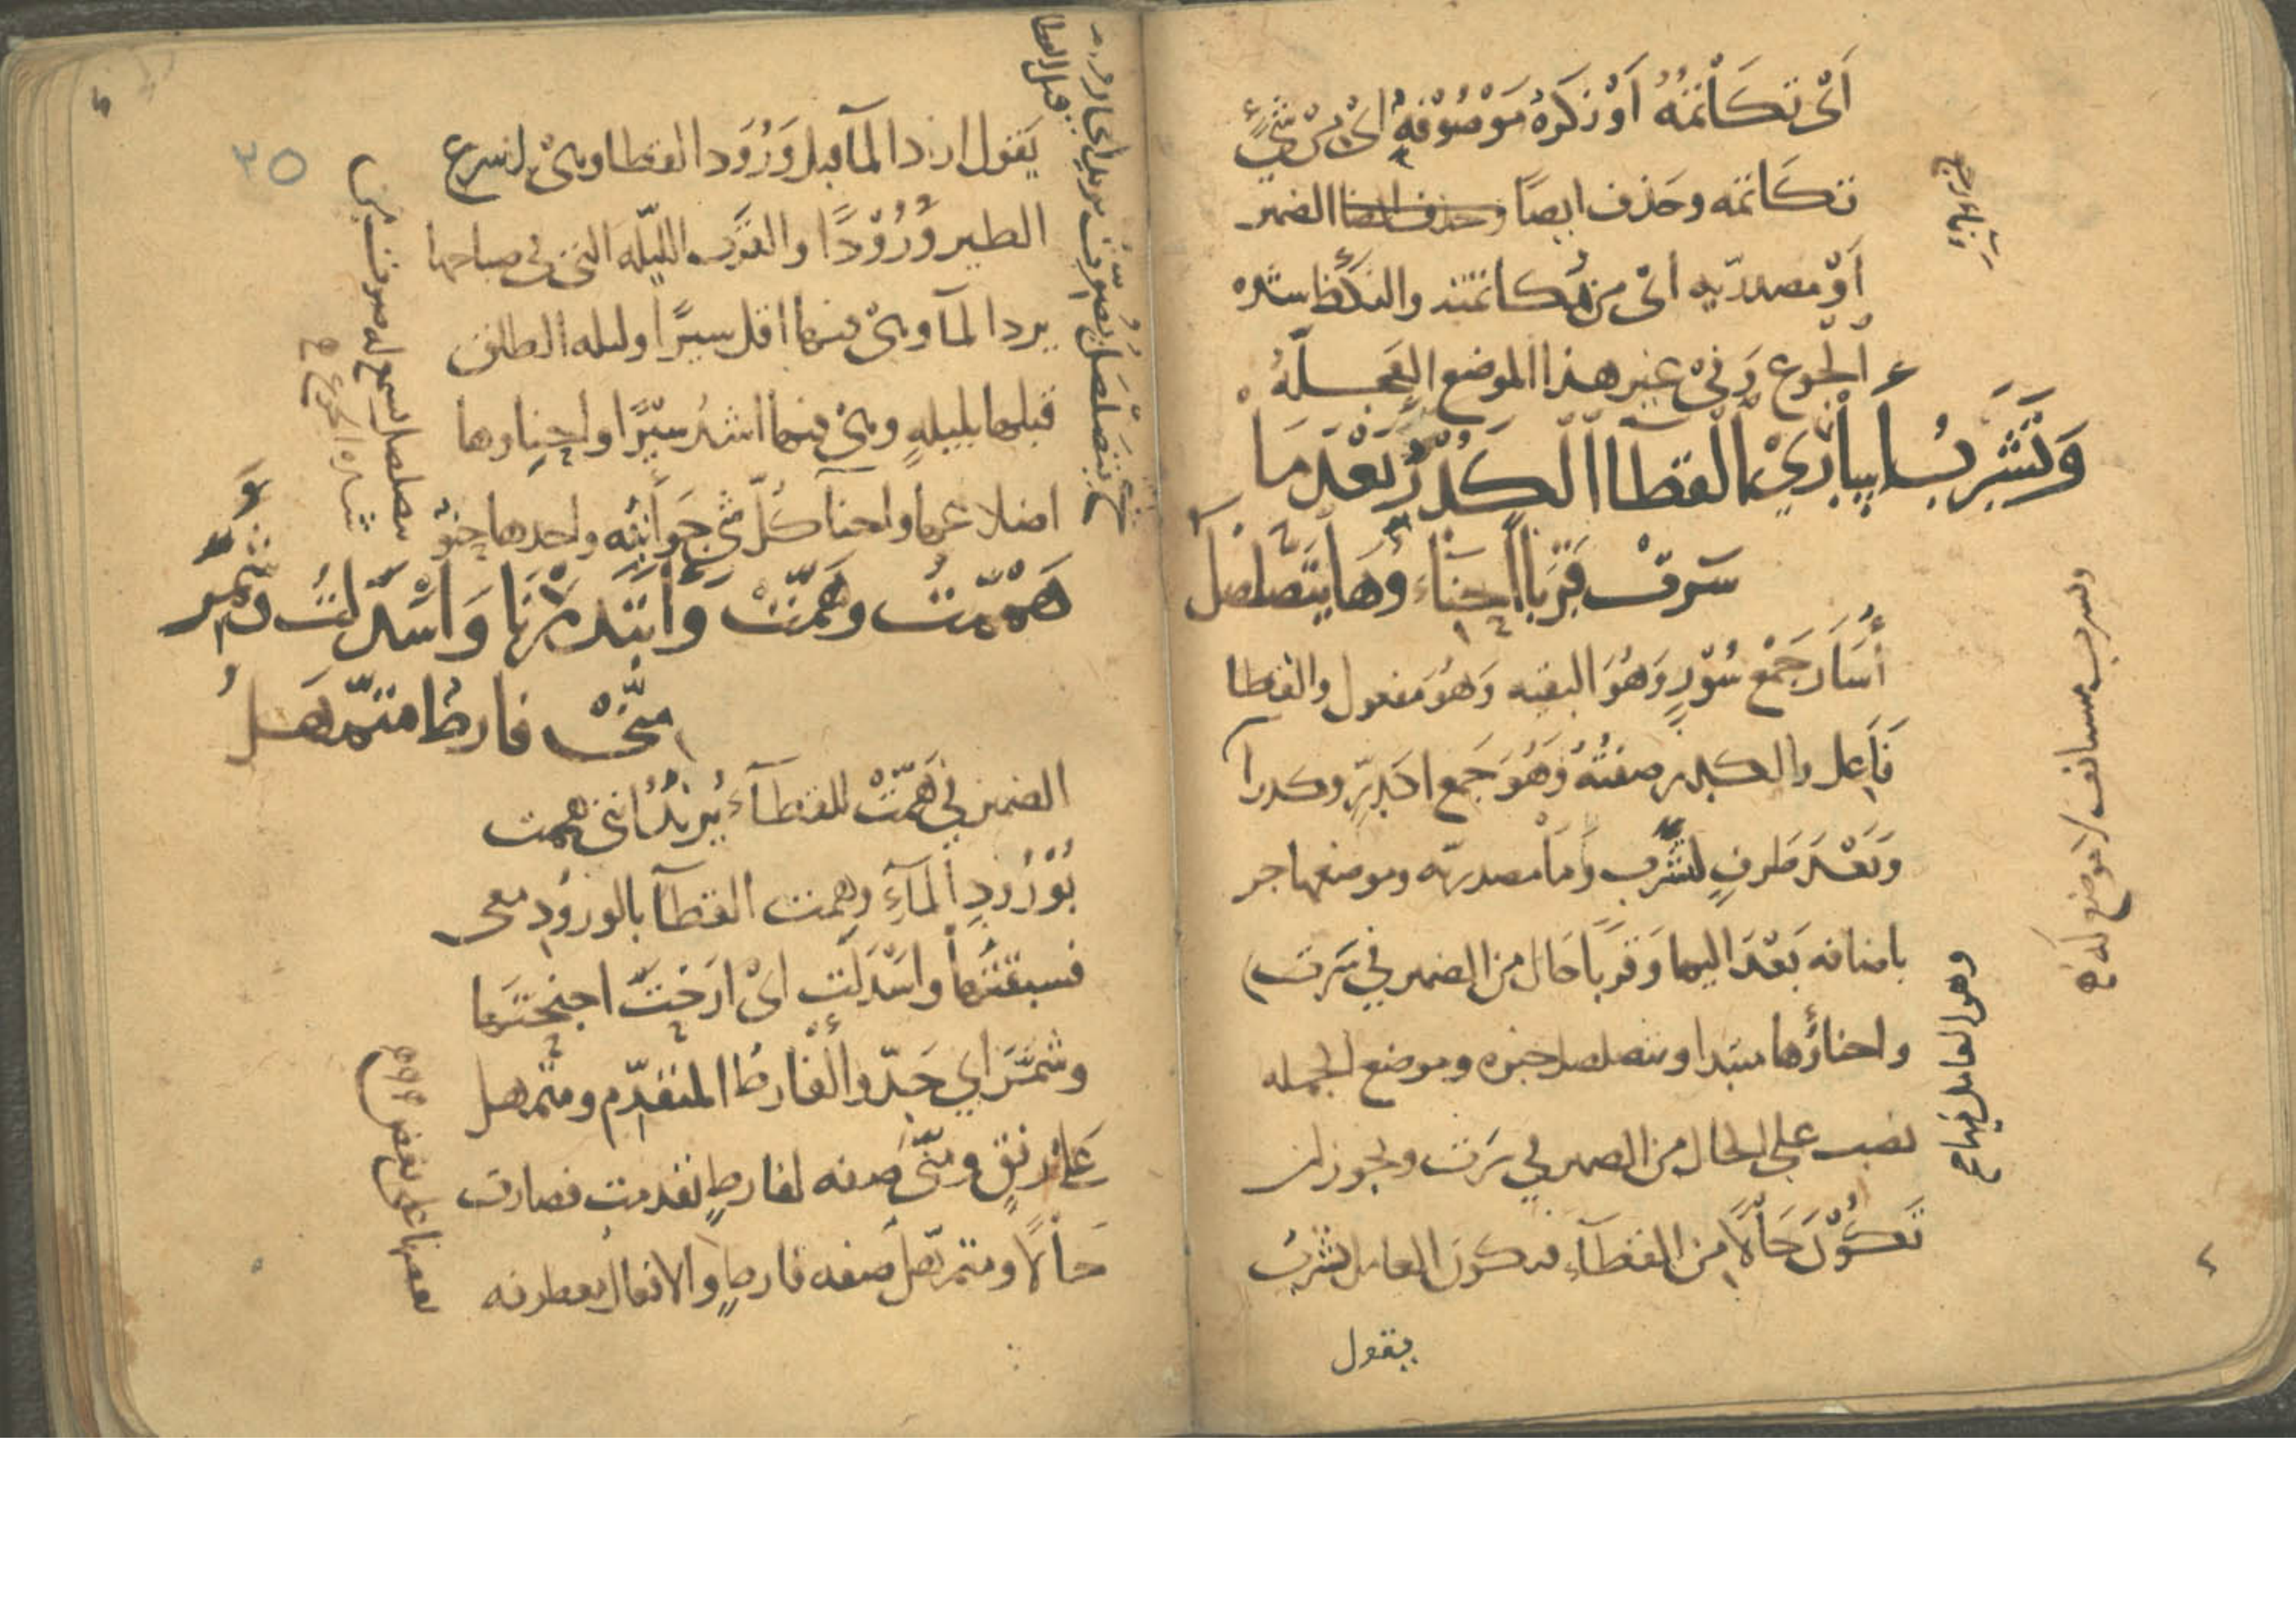 اَىْ تكَاتمَهُ اَوْ نكرَة مَوْصُوْفه اىْ مِنْ شَىْءٍ
تكاتمه وحَذف ايضًا الضمير
اَوْ مَصدَرّيه اىْ من مكاتمته والنكظ شدة
الْجُوع وَفىْ غير هذا الموضع العَجَلَةُ
وَتَشْرَبُ أَسْآرِيْ القَطَا الكُدْرُ بَعْدَ مَا
سَرتْ قَرَباً احْنَاءُ وهَا يَتَصَلْصَلُ
أَسْآر جَمْع سُوْرٍ وَهُوَ البقيه وَهُوَ مفعول والقطا
فَاعِل والكدر صفتُهُ وَهُوَ جَمع اكدرٍ وكدرا
وَبَعْدَ ظرفٍ لتَشْرَب وَمَا مَصدريّه وموضعها جر
باضافه بَعْدَ اليها وَقَرَبًا حَال من الضمير في سَرَت
واحناؤُها مبتدا ويتصلصل خبره وموضع الجمله
نصب على الحال من الضمير في سَرَت ويجوز ان
تكُوْنَ حَالًا من القطَآءِ فيكون العامل تشربُ
وهو العامل فيها
وتشرب مستانف لا موضع له
يقول
يَقول ارد المآ قبل وَرُوَد القطا وهىْ اسرع
الطير وُرُوْدًا والقَرَب الليلَه التى فى صباحها
يرد المآ وهىْ فيها اقل سيرًا وليله الطلق
قبلها بليلهٍ وهىْ فيها اشد سيْرًا واحناوها
اضلاعها واحنآ كُلّ شىْ جَوَانبُه واحدها حِنوٌ
هَمَمْتُ وهَمَّتْ وَابْتَدَرْنَا وَاَسْدَلَتْ وَشَمَّرَ
مِنّىْ فارِطٌ متَمَهّلُ
الضمير في هَمَّتْ للقطَآء يُريْدُ اننى هممت
بُوْرُودِ الْمآءِ وهمت القطَآ بالورُودِ معى
فسبقتُهَا واسْدَلَتْ اىْ ارْخَتْ اجنحتَهَا
وشمَّرَ اي جَدّ والْفَارطُ المتقدّم ومتمهل
عَلى رفقٍ ومنّى صفه لفارطٍ تقدمت فصارت
حَالًا ومتمهّل صفه فارطٍ والافعال معطوفه
بعضها على بعض
٣٥